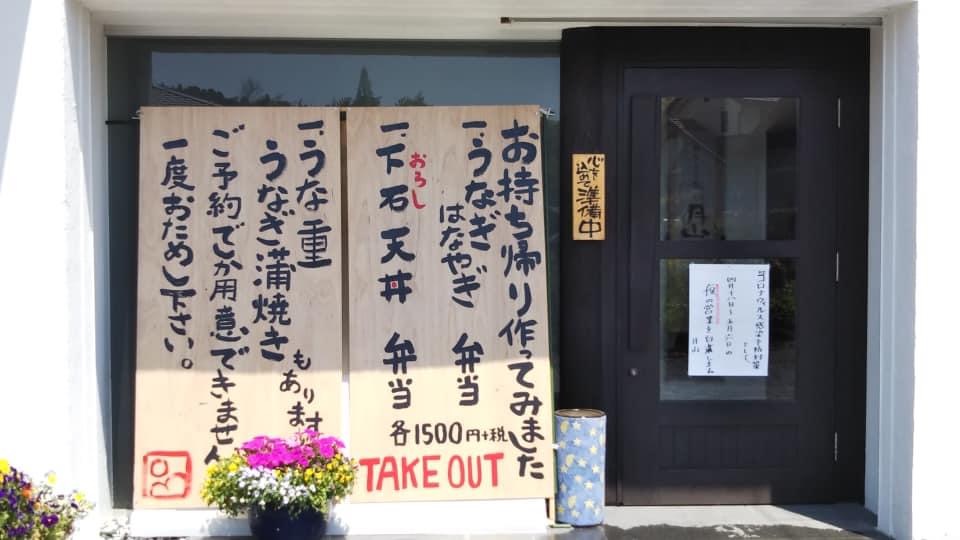 お持ち帰り作ってみました
一、うなぎ 弁当
はなやぎ
一、下石天丼 弁当
おろし
各1500円+税
TAKE OUT
一、うな重
うなぎ蒲焼き
もあります
ご予約でか用意できません
一度おためし下さい。
心を込めて準備中
月山
コロナウィルス感染予防対策
として、
四月十八日~五月六日の
夜の営業を自粛します
月山